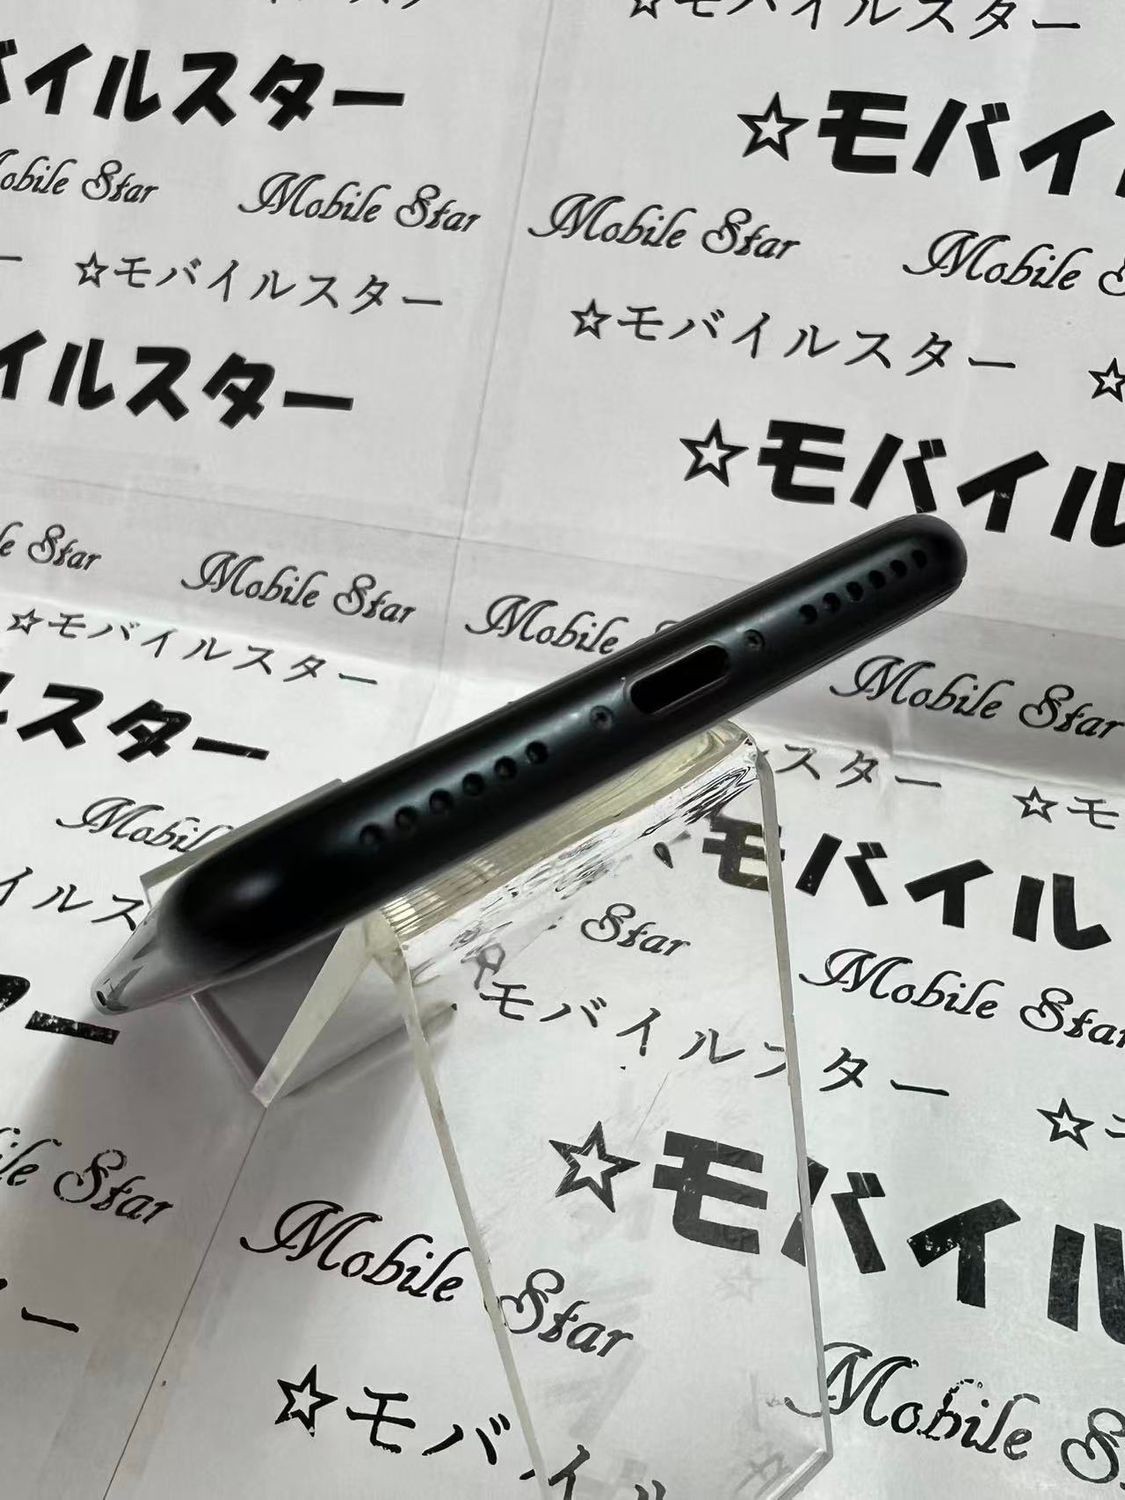 モバイルスター
バイルスター
☆モバイ
Mobile Star
Mobile Star
Mobile Star
Mobile S
☆モバイルスター
☆モバイルスター
☆
イルスター
☆モバイル
le Star
Mobile Star
Mobile
☆モバイルスター
Mobile Star
ルスター
スター
☆モ
Mobil
モバイル
イルス
Star
Mobile Star
ター
モバイルスター
☆モ
ile Star
☆モバイル
Mobile Star
ー
Mobile S
☆モバイル